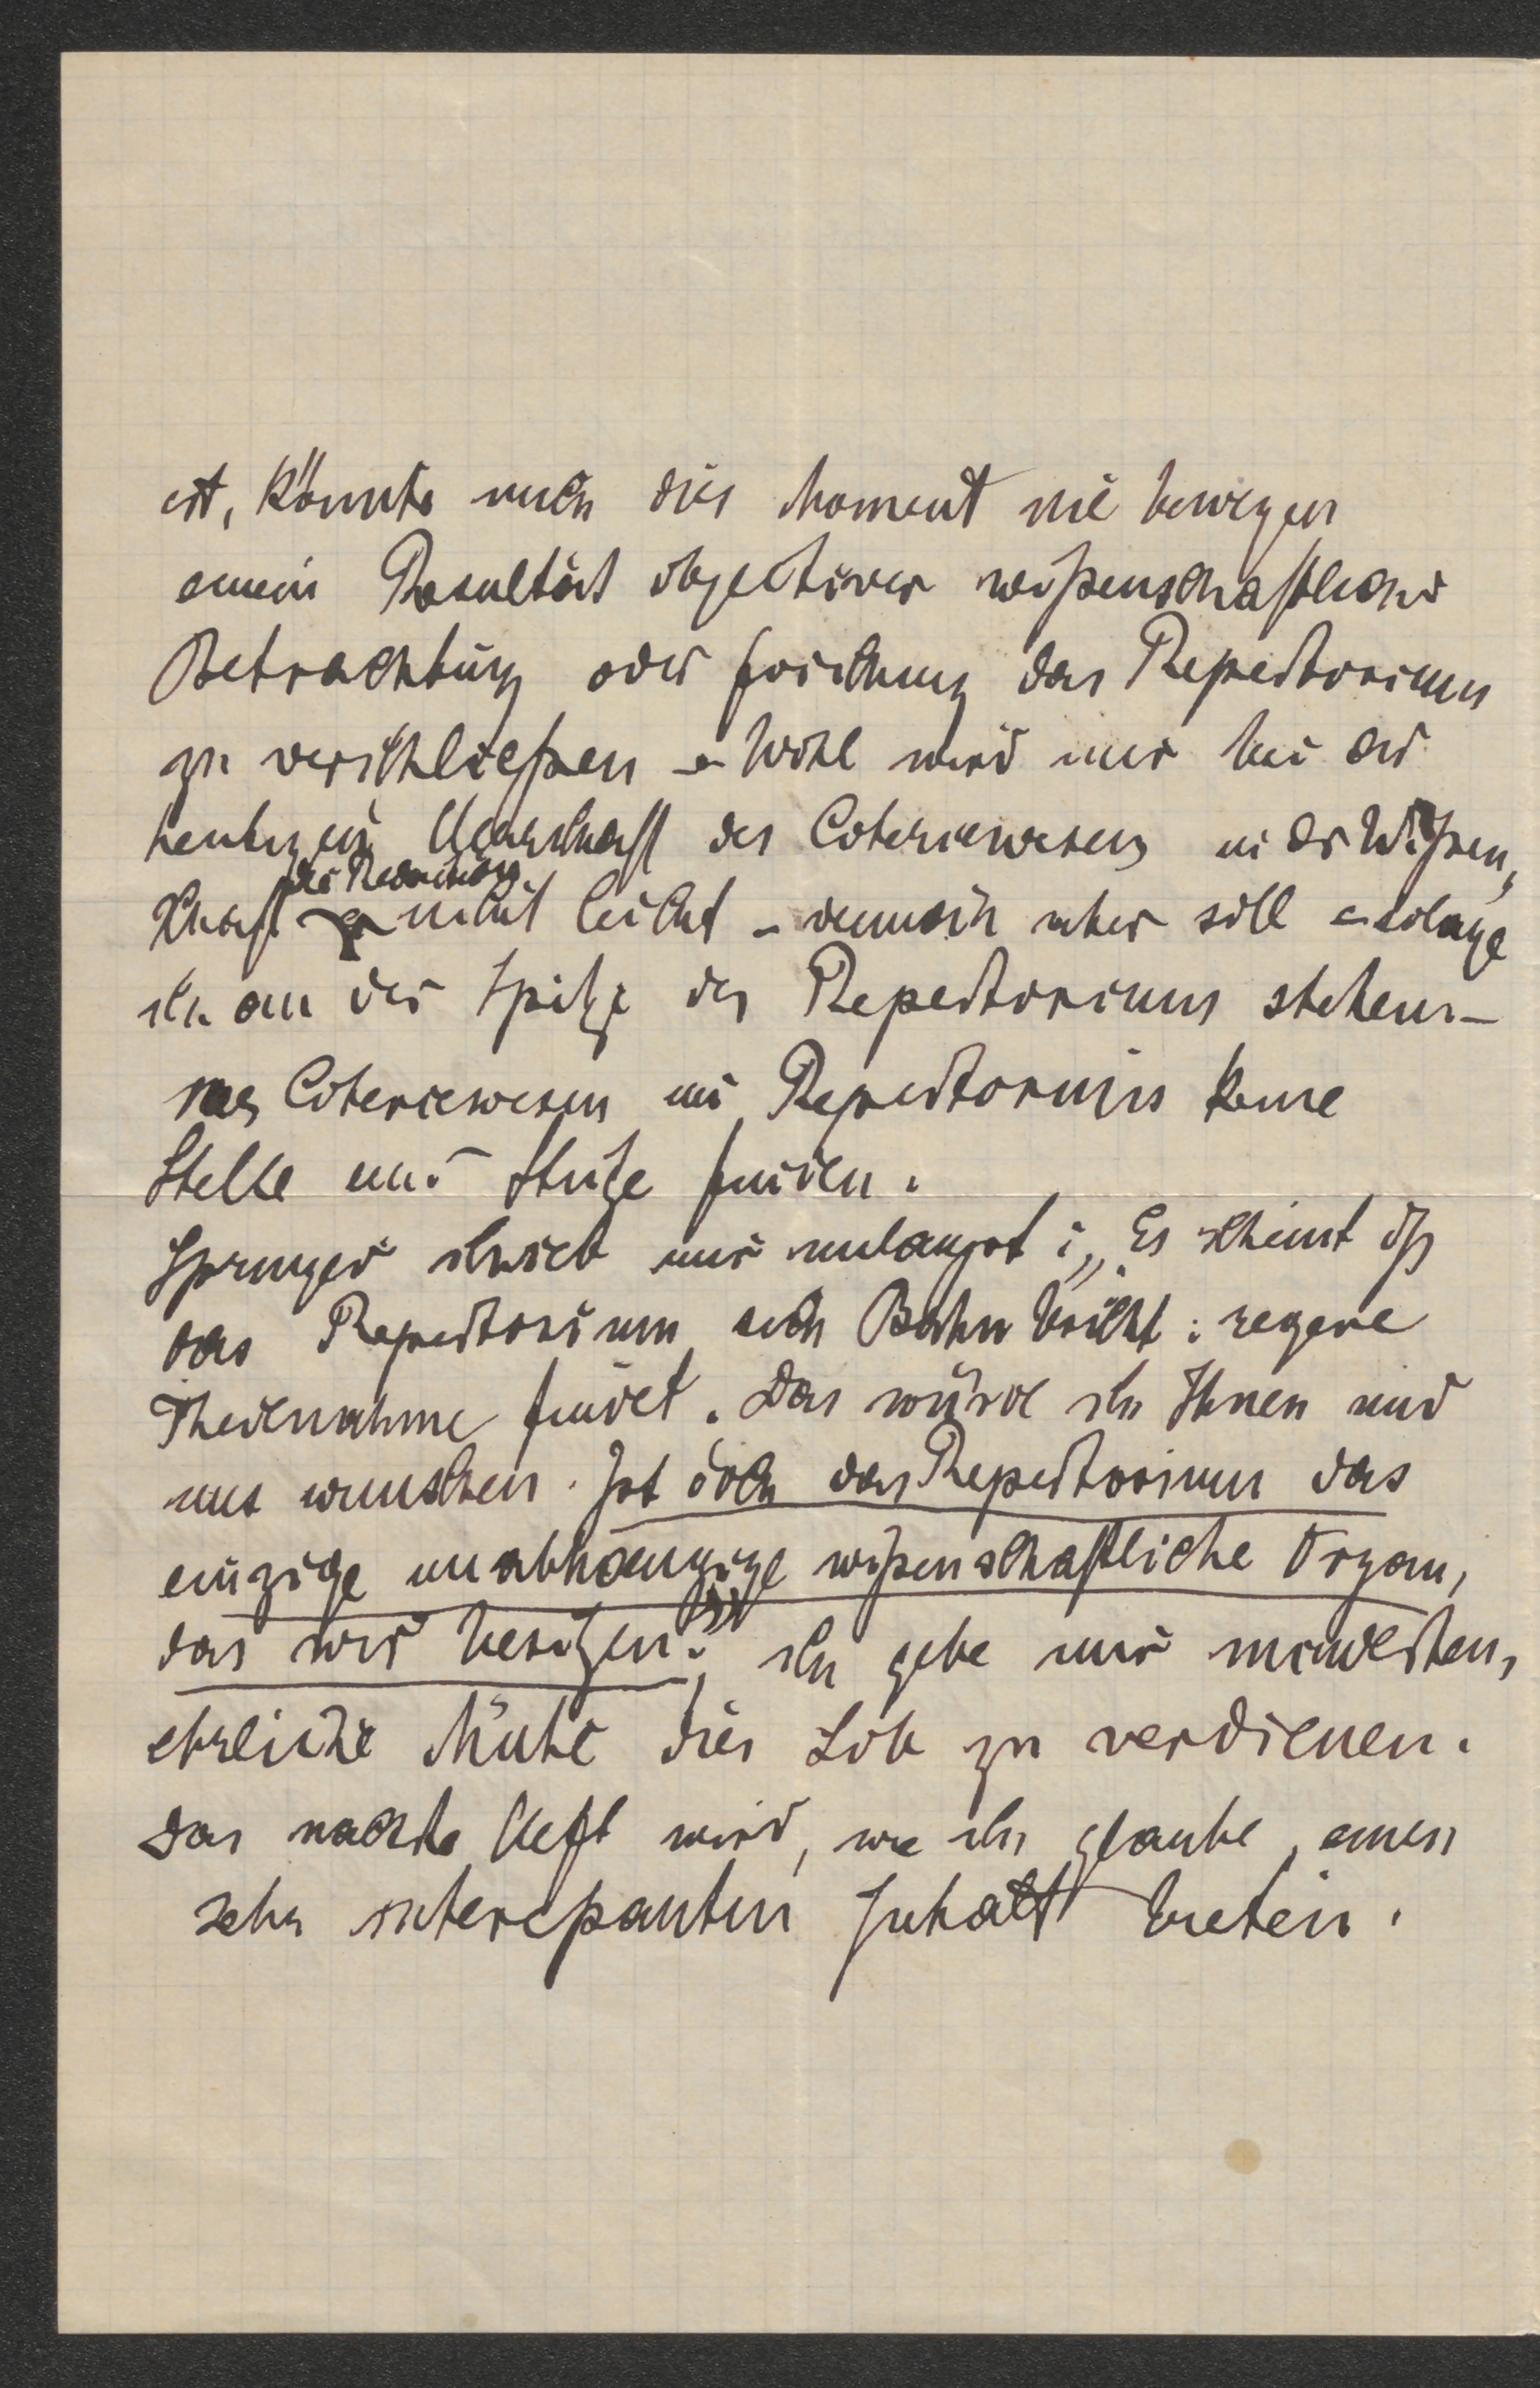 ist, könnte mich dies Moment nie bewegen
einem Resultat objectiver wißenschaftlicher
Betrachtung oder Forschung das Repertorium
zu verschließen – Wohl wird mir bei der
heutigen Herrschaft des Coteriewesens in der Wißen„
schaft die Redaction nicht leicht – dennoch aber soll – solange
ich an der Spitze des Repertoriums stehen –
das Coteriewesen im Repertorium keine
Stelle und Stütze finden.
Springer schrieb mir unlängst: „Es scheint daß
das Repertorium sich Bahn bricht: regere
Theilnahme findet. Das würde ich Ihnen und
uns wünschen. Ist doch das Repertorium das
einzige unabhängige wißenschaftliche Organ,
das wir besitzen." Ich gebe mir mindestens
ehrliche Mühe dies Lob zu verdienen.
Das nächste Heft wird, wie ich glaube, einen
sehr intereßanten Inhalt bieten.